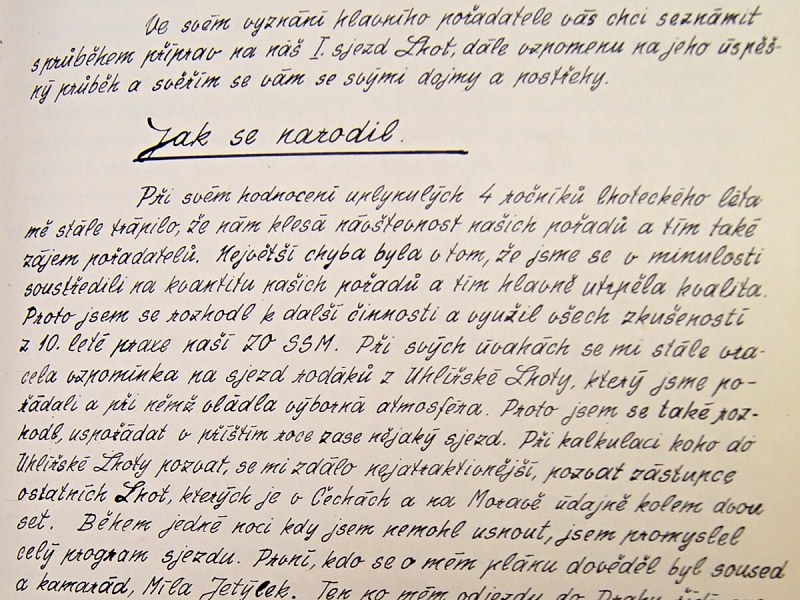 Ve svém vyznání hlavního pořadatele vás chci seznámit
s průběhem příprav na náš I. sjezd Lhot, dále vzpomenu na jeho úspěš-
ný průběh a svěřím se vám se svými dojmy a postřehy.
Jak se narodil.
Při svém hodnocení uplynulých 4 ročníků lhoteckého léta
mě stále trápilo, že nám klesá návštevnost našich pořadů a tím také
zájem pořadatelů. Největší chyba byla v tom, že jsme se v minulosti
soustředili na kvantitu našich pořadů a tím hlavně utrpěla kvalita.
Proto jsem se rozhodl k další činnosti a využil všech zkušeností
z 10. leté praxe naší ZO SSM. Při svých úvahách se mi stále vra-
cela vzpomínka na sjezd rodáků z Uhlířské Lhoty, který jsme po-
řádali a při němž vládla výborná atmosféra. Proto jsem se také roz-
hodl, uspořádat v příštím roce zase nějaký sjezd. Při kalkulaci koho do
Uhlířské Lhoty pozvat, se mi zdálo nejatraktivnější, pozvat zástupce
ostatních Lhot, kterých je v Čechách a na Moravě údajně kolem dvou
set. Během jedné noci kdy jsem nemohl usnout, jsem promyslel
celý program sjezdu. První, kdo se o mém plánu dověděl byl soused
a kamarád, Míla Jetýlek. Ten po mém odjezdu do Prahy